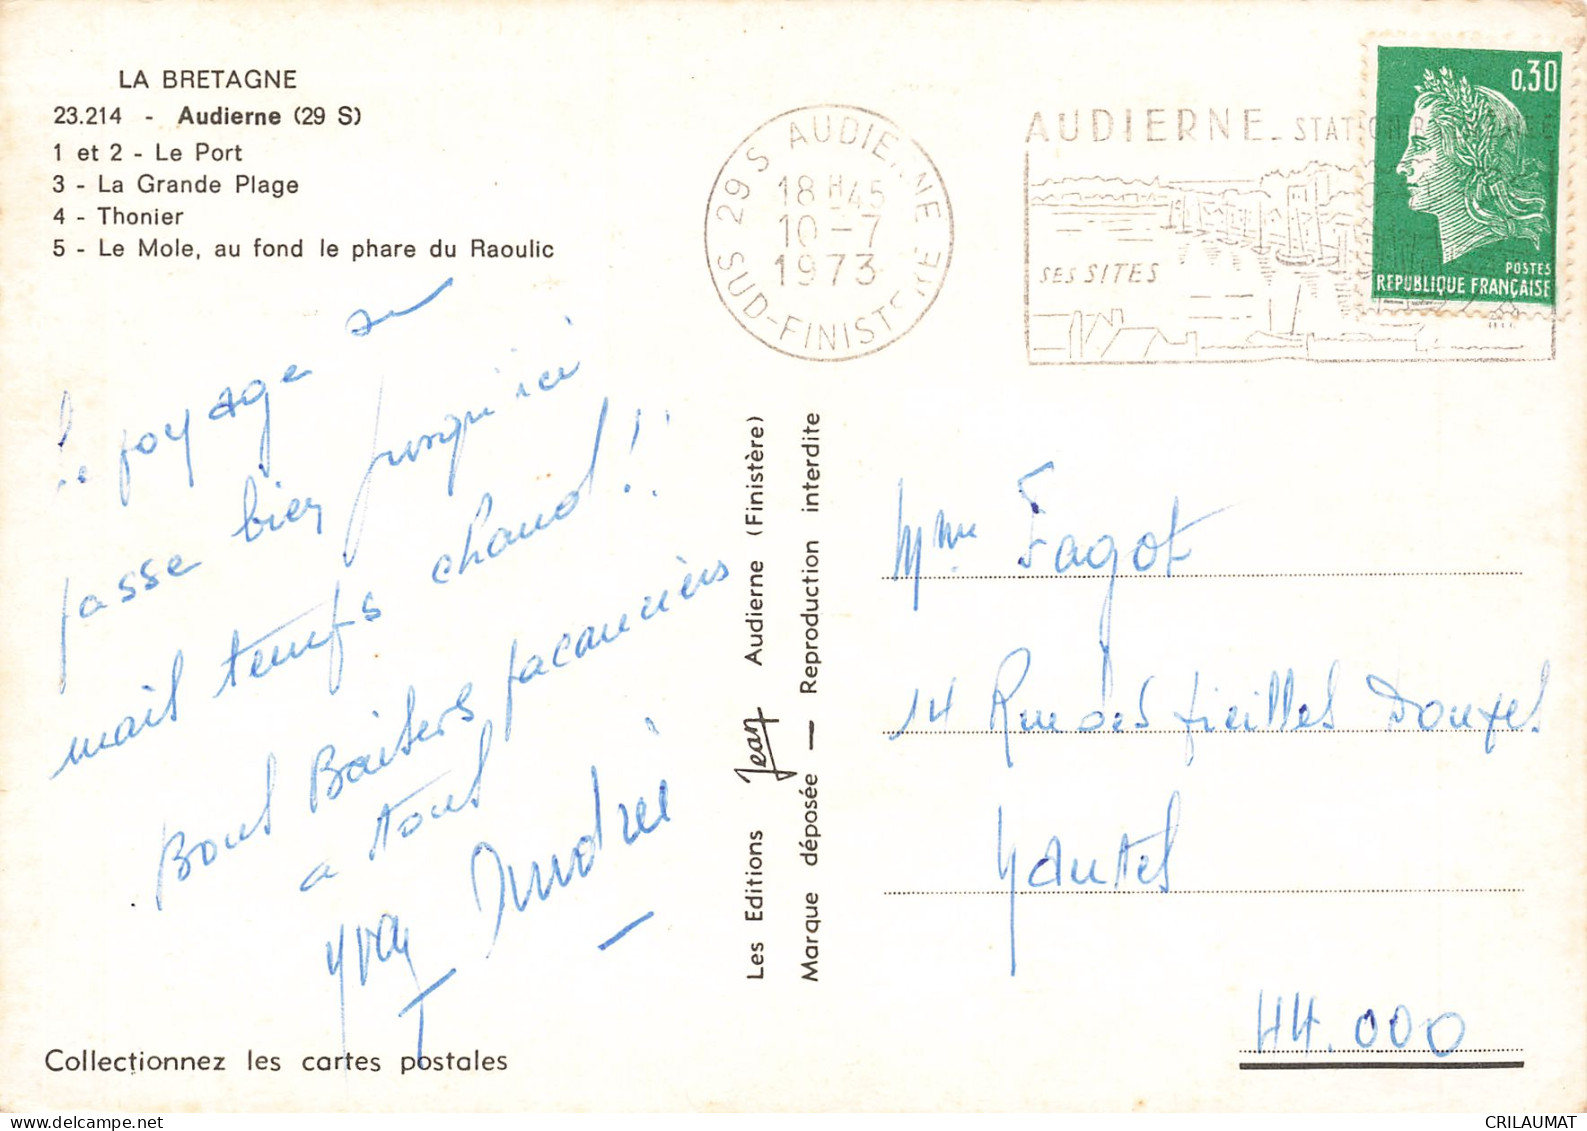 LA BRETAGNE
23.214 - Audierne (29 S)
1 et 2 - Le Port
3 - La Grande Plage
4 - Thonier
5 - Le Mole, au fond le phare du Raoulic
Le voyage se
passe bien jusqu'ici
mais temps chaud !!
Bons Baisers vacanciers
a tous
Andrée
Yvon
Collectionnez les cartes postales
Les Editions Jean Audierne (Finistère)
Marque déposée — Reproduction interdite
29 S AUDIERNE
18 H 45
10 - 7
1973
SUD-FINISTERE
AUDIERNE - STATION
SES SITES
0,30
POSTES
REPUBLIQUE FRANÇAISE
Mme Fagot
14 Rue des Vieilles Douves
Nantes
44.000
CRILAUMAT